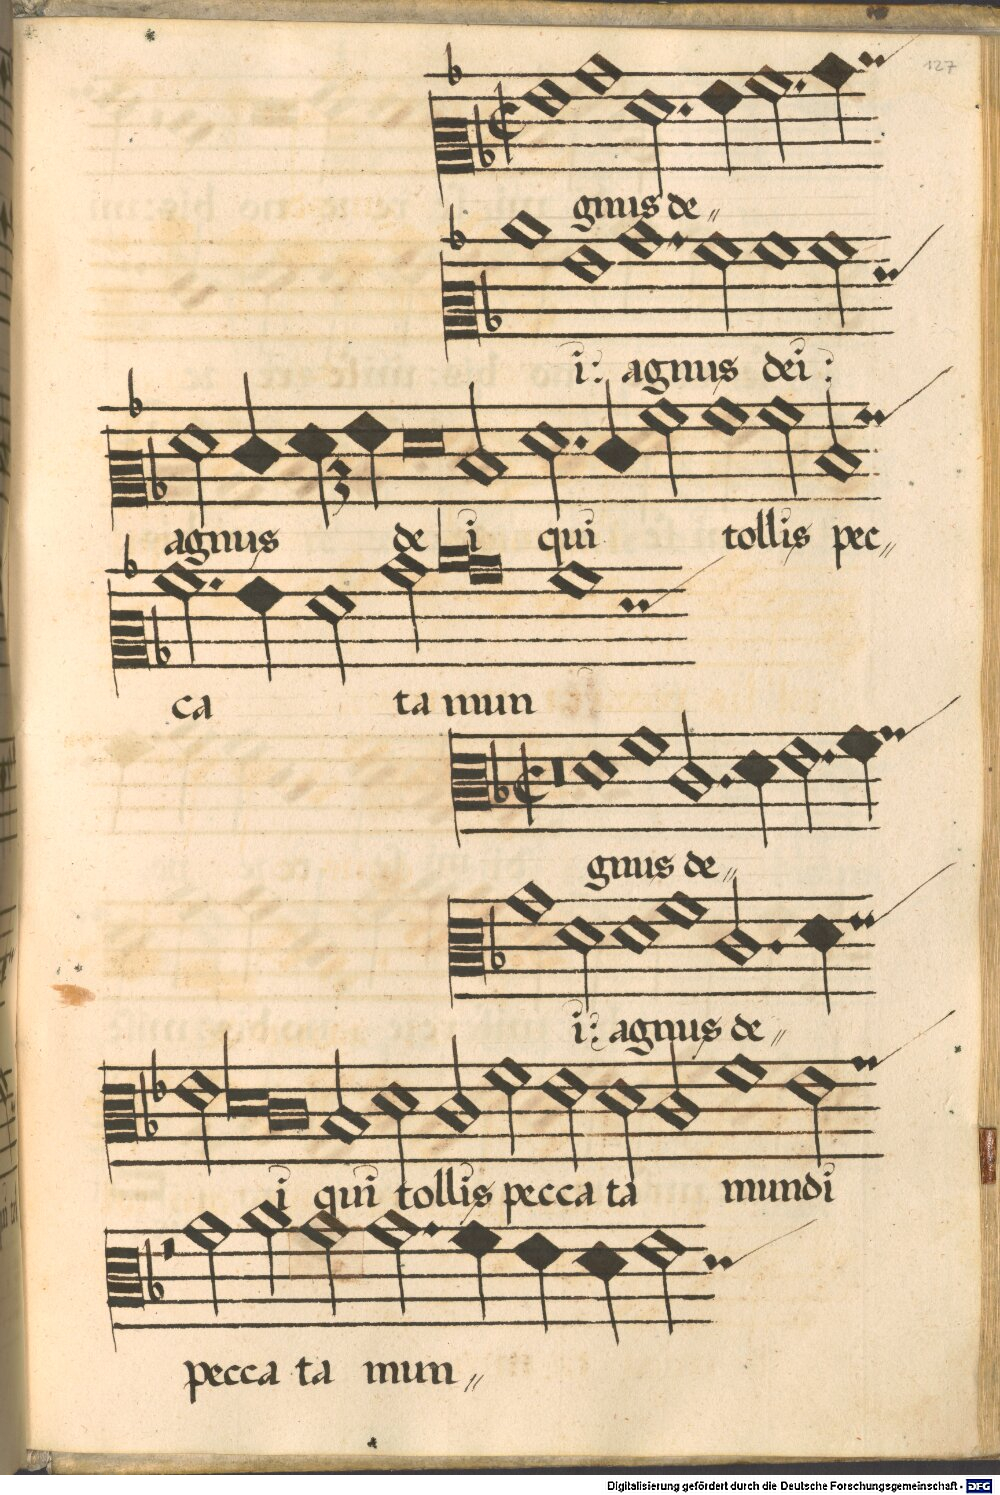 127
gnus de„
i: agnus dei:
agnus de i qui tollis pec„
ca ta mun
gnus de„
i: agnus de„
i qui tollis pecca ta mundi
pecca ta mun„
Digitalisierung gefördert durch die Deutsche Forschungsgemeinschaft - DFG